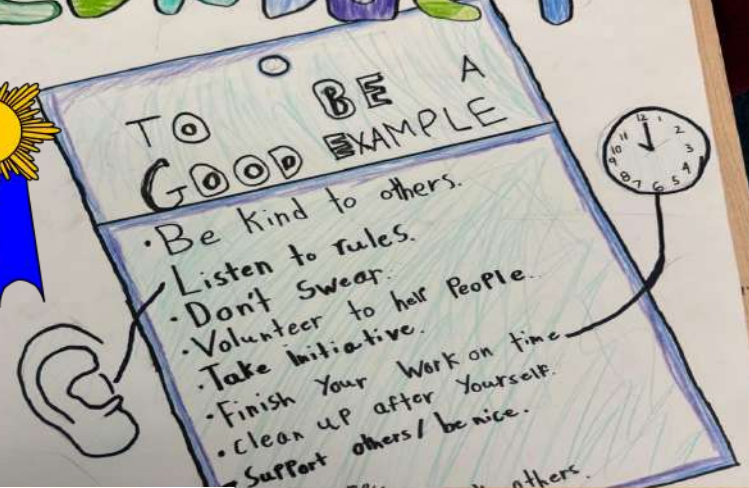 TO BE A
GOOD EXAMPLE
12 1 2 3 4 5 6 7 8 9 10 11
• Be kind to others.
Listen to rules.
• Don't Swear.
• Volunteer to help People.
• Take initiative.
• Finish Your Work on time
• Clean up after Yourself.
- Support others / be nice.
others.